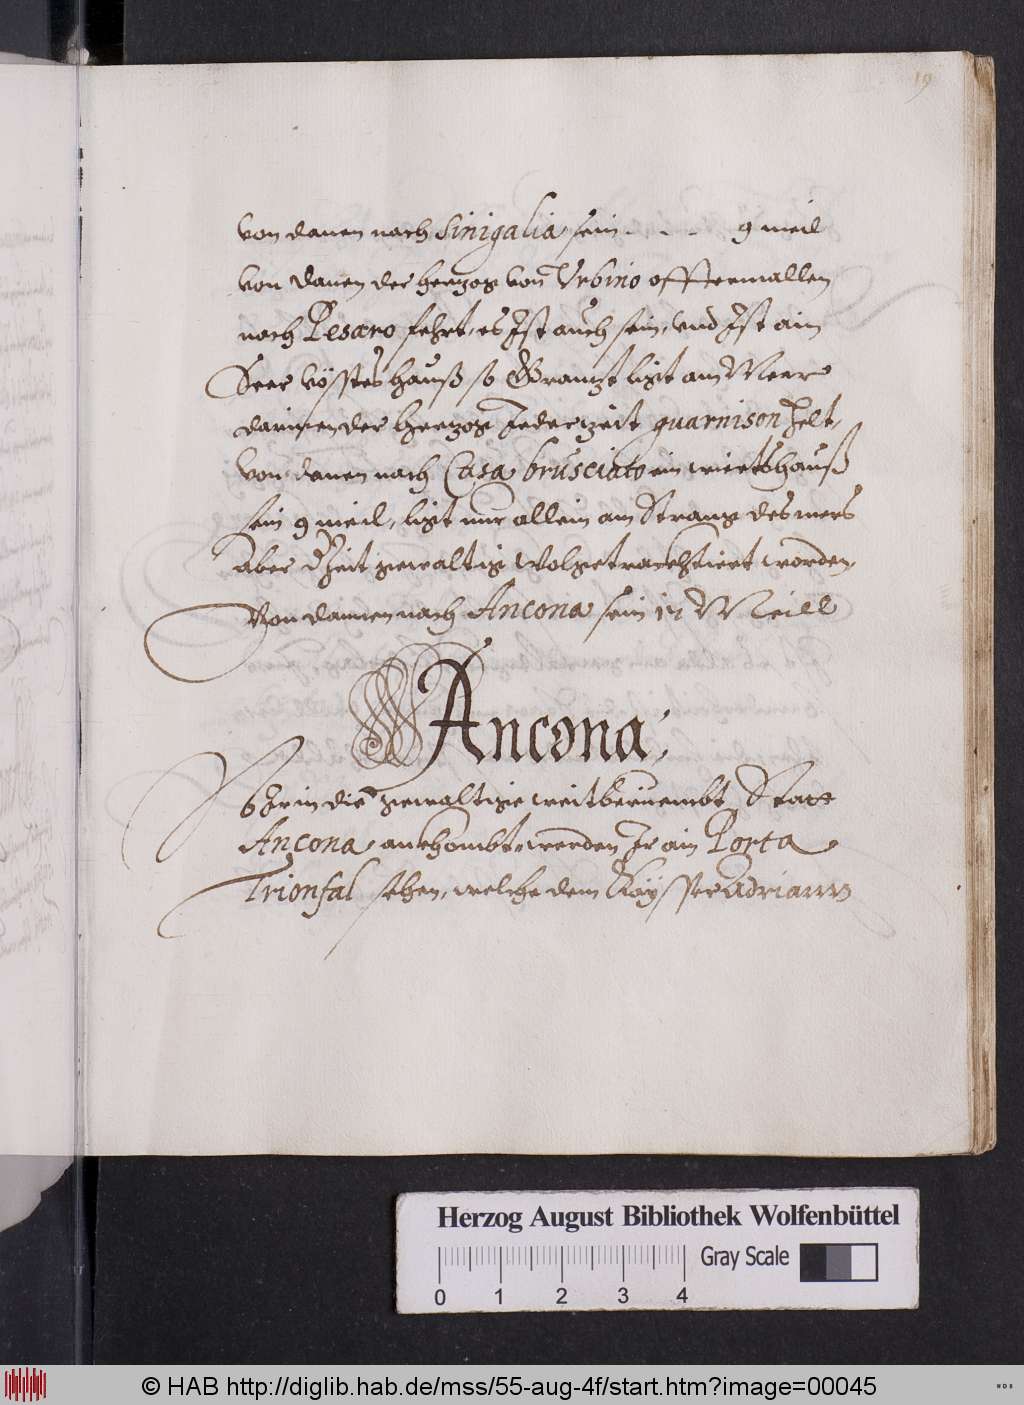 19
von danen nach Sinigalia sein . . . . 9 meil
von danen der herzog von Urbino offtermallen
nach Pesaro fehrt, es Ist auch sein, und Ist ain
Seer vösstes hauß so Granizt ligt am Meer
darinen der Herzog Jederzeit guarnison helt,
von danen nach Casa brusciato ein wiertshauß
sein 9 meil, ligt nur allein am Strang des mers
Aber d Zeit gewaltig wolgetrachtiert worden,
Von dannen nach Ancona sein Meill
Ancona,
So Ir in die gewaltige weitberuembt Statt
Ancona ankhombt, werden Ir ain Porta
Trionfal sehen, welche dem Kaysser Adriano
Herzog August Bibliothek Wolfenbüttel
Gray Scale
0 1 2 3 4
© HAB http://diglib.hab.de/mss/55-aug-4f/start.htm?image=00045